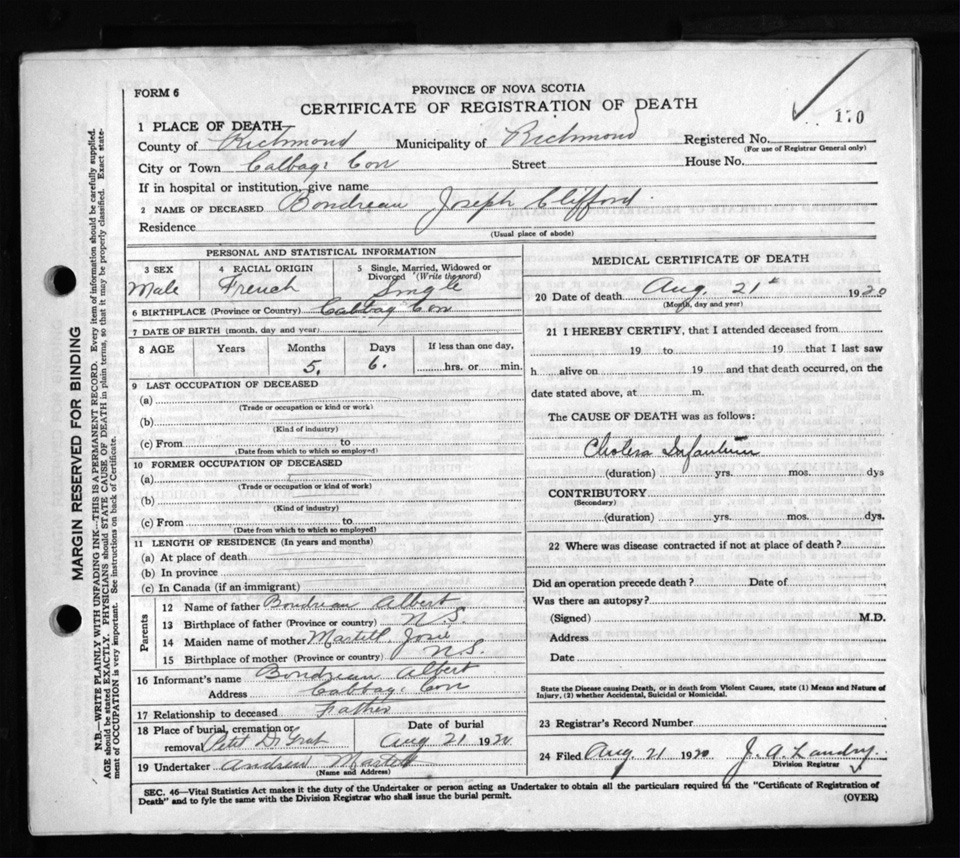 FORM 6
PROVINCE OF NOVA SCOTIA
CERTIFICATE OF REGISTRATION OF DEATH
170
1 PLACE OF DEATH—
County of Richmond Municipality of Richmond Registered No.
(For use of Registrar General only)
City or Town Calbage Cov Street House No.
If in hospital or institution, give name
2 NAME OF DECEASED Boudreau Joseph Clifford
Residence
(Usual place of abode)
PERSONAL AND STATISTICAL INFORMATION
3 SEX 4 RACIAL ORIGIN 5 Single, Married, Widowed or Divorced (Write the word)
Male French Single
6 BIRTHPLACE (Province or Country) Cabbag Cov
7 DATE OF BIRTH (month, day and year)
8 AGE Years Months Days If less than one day,
5. 6. hrs. or min.
9 LAST OCCUPATION OF DECEASED
(a)
(Trade or occupation or kind or work)
(b)
(Kind of industry)
(c) From to
(Date from which to which so employed)
10 FORMER OCCUPATION OF DECEASED
(a)
(Trade or occupation or kind of work)
(b)
(Kind of industry)
(c) From to
(Date from which to which so employed)
11 LENGTH OF RESIDENCE (In years and months)
(a) At place of death
(b) In province
(c) In Canada (if an immigrant)
Parents
12 Name of father Boudreau Albert
13 Birthplace of father (Province or country) N.S.
14 Maiden name of mother Martell Josie
15 Birthplace of mother (Province or country) N.S.
16 Informant's name Boudreau Albert
Address Cabbag Cov
17 Relationship to deceased Father
18 Place of burial, cremation or removal Petit De Grat Date of burial Aug 21 1920
19 Undertaker Andrew Martell
(Name and Address)
MEDICAL CERTIFICATE OF DEATH
20 Date of death Aug. 21st 1920
(Month, day and year)
21 I HEREBY CERTIFY, that I attended deceased from
19 to 19 that I last saw
h alive on 19 and that death occurred, on the
date stated above, at m.
The CAUSE OF DEATH was as follows:
Cholera Infantum
(duration) yrs. mos. dys
CONTRIBUTORY
(Secondary)
(duration) yrs. mos. dys.
22 Where was disease contracted if not at place of death?
Did an operation precede death? Date of
Was there an autopsy?
(Signed) M.D.
Address
Date
State the Disease causing Death, or in death from Violent Causes, state (1) Means and Nature of
Injury, (2) whether Accidental, Suicidal or Homicidal.
23 Registrar's Record Number
24 Filed Aug. 21 1920 J. A. Landry.
Division Registrar
SEC. 46—Vital Statistics Act makes it the duty of the Undertaker or person acting as Undertaker to obtain all the particulars required in the "Certificate of Registration of
Death" and to fyle the same with the Division Registrar who shall issue the burial permit. (OVER)
MARGIN RESERVED FOR BINDING
N.B.—WRITE PLAINLY WITH UNFADING INK—THIS IS A PERMANENT RECORD. Every item of information should be carefully supplied.
AGE should be stated EXACTLY. PHYSICIANS should STATE CAUSE OF DEATH in plain terms, so that it may be properly classified. Exact state-
ment of OCCUPATION is very important. See instructions on back of Certificate.